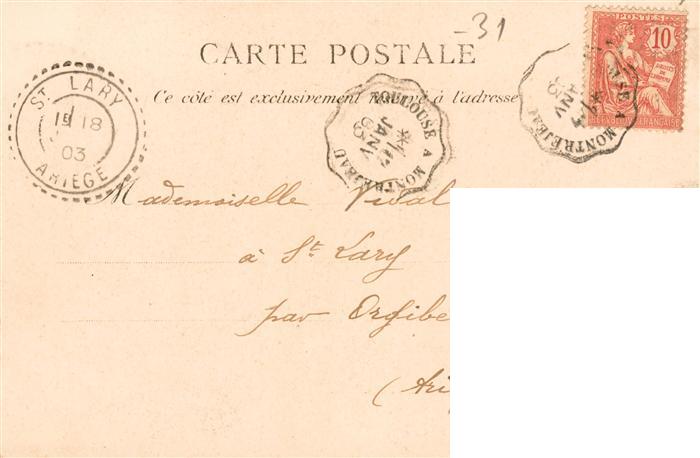 -31
CARTE POSTALE
Ce côté est exclusivement à l'adresse
POSTES
10
DROITS DE L'HOMME
REPUBLIQUE FRANÇAISE
ST LARY
18
03
ARIEGE
TOULOUSE A MONTREJEAU
JANV
03
MONTREJEAU
JANV
03
Mademoiselle Vidal
à St Lary
par Orgibe
(Ari